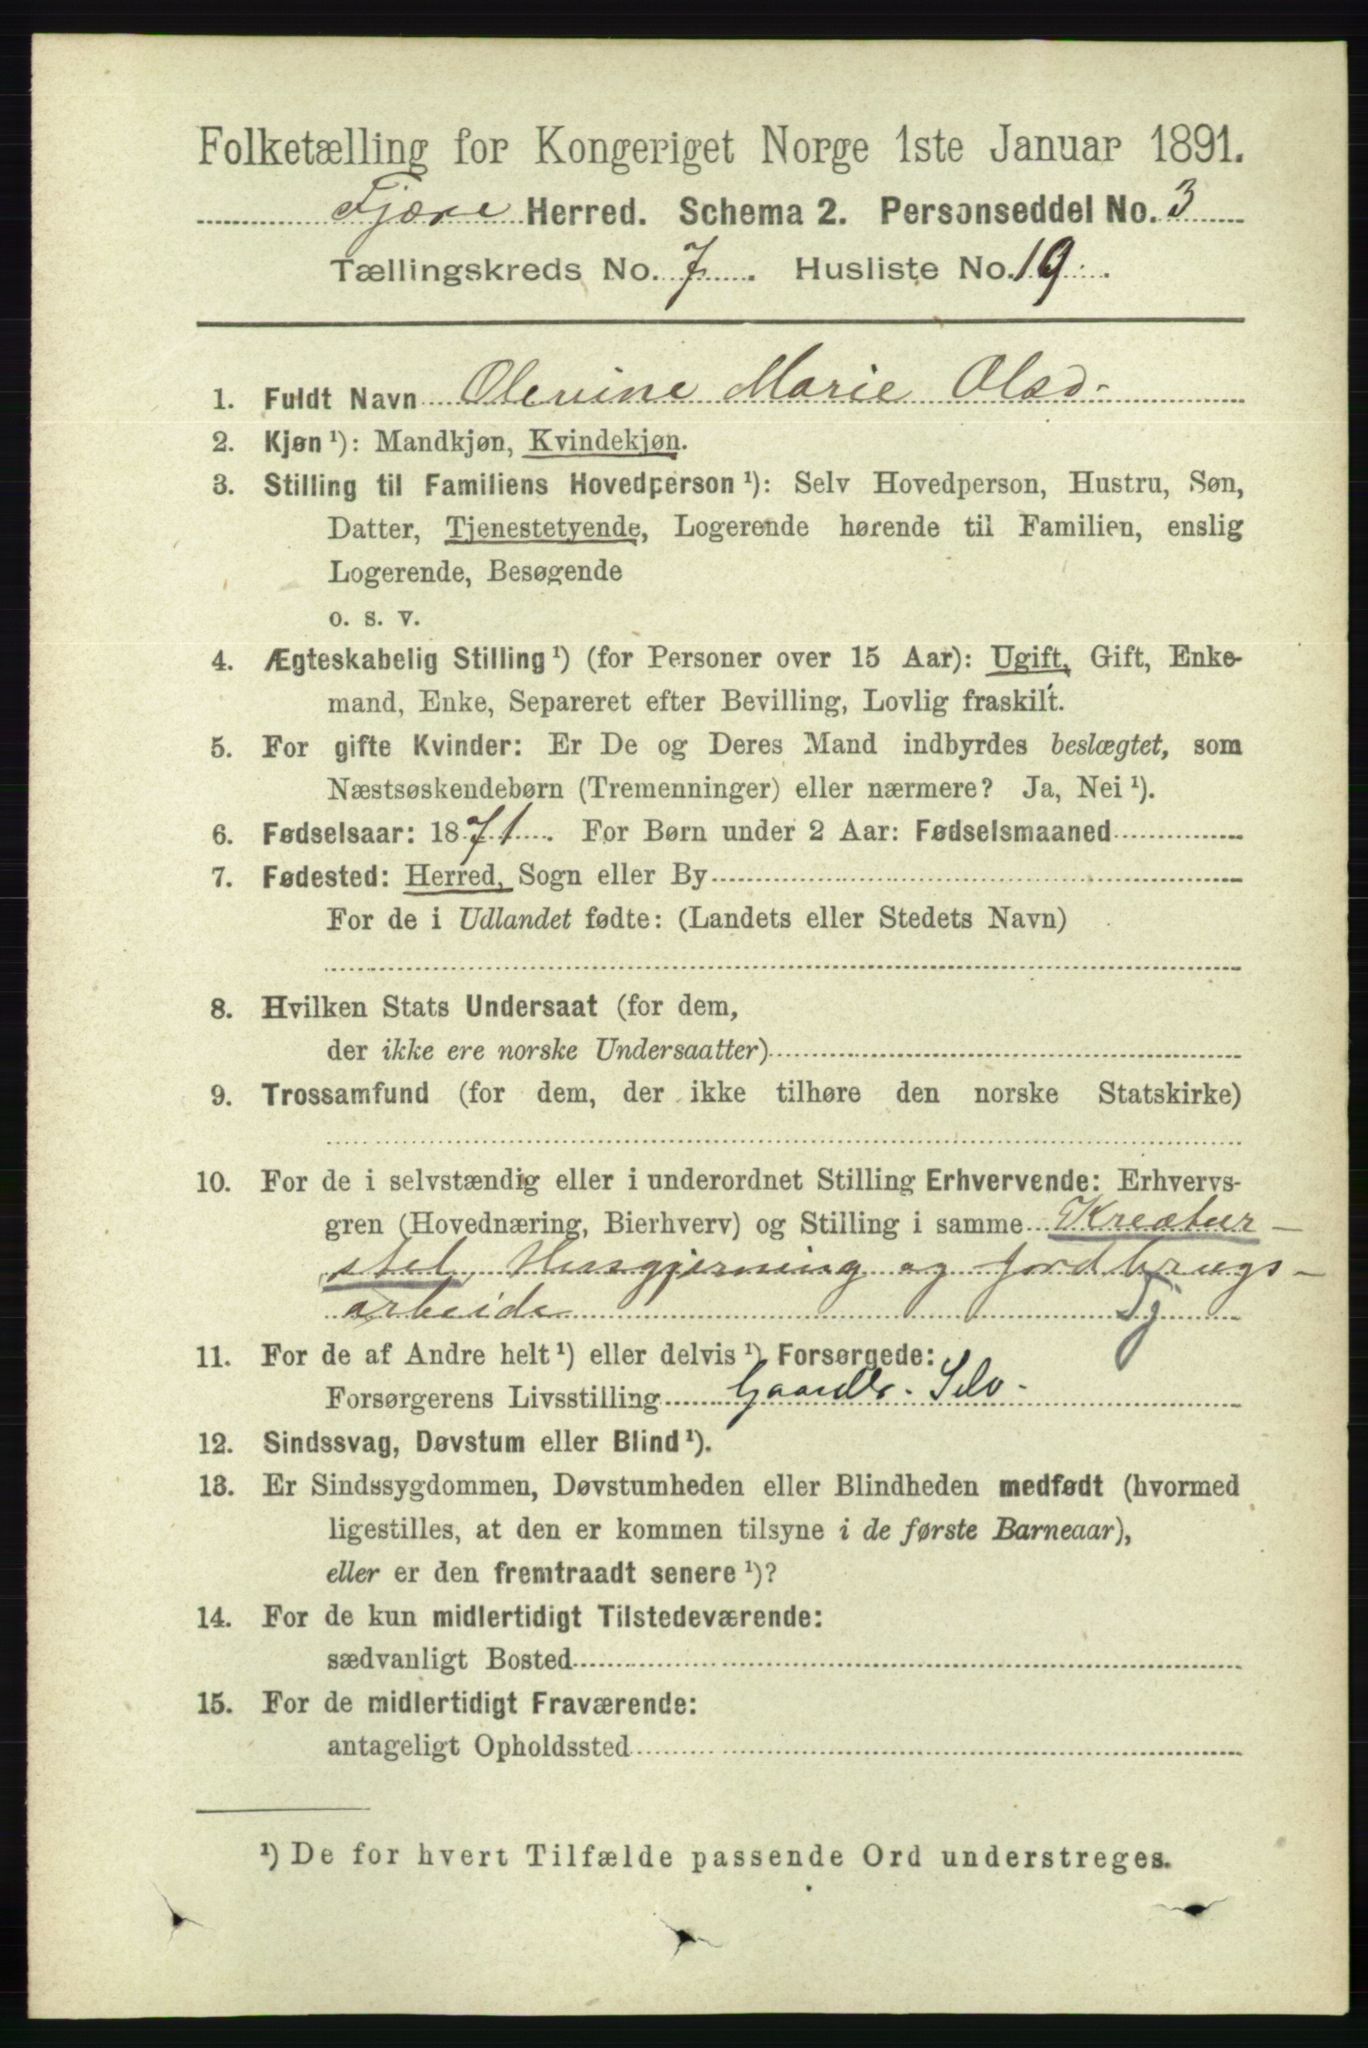 Folketælling for Kongeriget Norge 1ste Januar 1891.
Fjære Herred. Schema 2. Personseddel No. 3
Tællingskreds No. 7. Husliste No. 19.
1. Fuldt Navn Olevine Marie Olsd.
2. Kjøn ¹): Mandkjøn, Kvindekjøn.
3. Stilling til Familiens Hovedperson ¹): Selv Hovedperson, Hustru, Søn,
Datter, Tjenestetyende, Logerende hørende til Familien, enslig
Logerende, Besøgende
o. s. v.
4. Ægteskabelig Stilling ¹) (for Personer over 15 Aar): Ugift, Gift, Enke-
mand, Enke, Separeret efter Bevilling, Lovlig fraskilt.
5. For gifte Kvinder: Er De og Deres Mand indbyrdes beslægtet, som
Næstsøskendebørn (Tremenninger) eller nærmere? Ja, Nei ¹).
6. Fødselsaar: 1871. For Børn under 2 Aar: Fødselsmaaned
7. Fødested: Herred, Sogn eller By
For de i Udlandet fødte: (Landets eller Stedets Navn)
8. Hvilken Stats Undersaat (for dem,
der ikke ere norske Undersaatter)
9. Trossamfund (for dem, der ikke tilhøre den norske Statskirke)
10. For de i selvstændig eller i underordnet Stilling Erhvervende: Erhvervs-
gren (Hovednæring, Bierhverv) og Stilling i samme Kreatur-
stel, Husgjerning og Jordbrugs-
arbeide Tj
11. For de af Andre helt ¹) eller delvis ¹) Forsørgede:
Forsørgerens Livsstilling Gaardbr. Selv.
12. Sindssvag, Døvstum eller Blind ¹).
13. Er Sindssygdommen, Døvstumheden eller Blindheden medfødt (hvormed
ligestilles, at den er kommen tilsyne i de første Barneaar),
eller er den fremtraadt senere ¹)?
14. For de kun midlertidigt Tilstedeværende:
sædvanligt Bosted
15. For de midlertidigt Fraværende:
antageligt Opholdssted
¹) De for hvert Tilfælde passende Ord understreges.